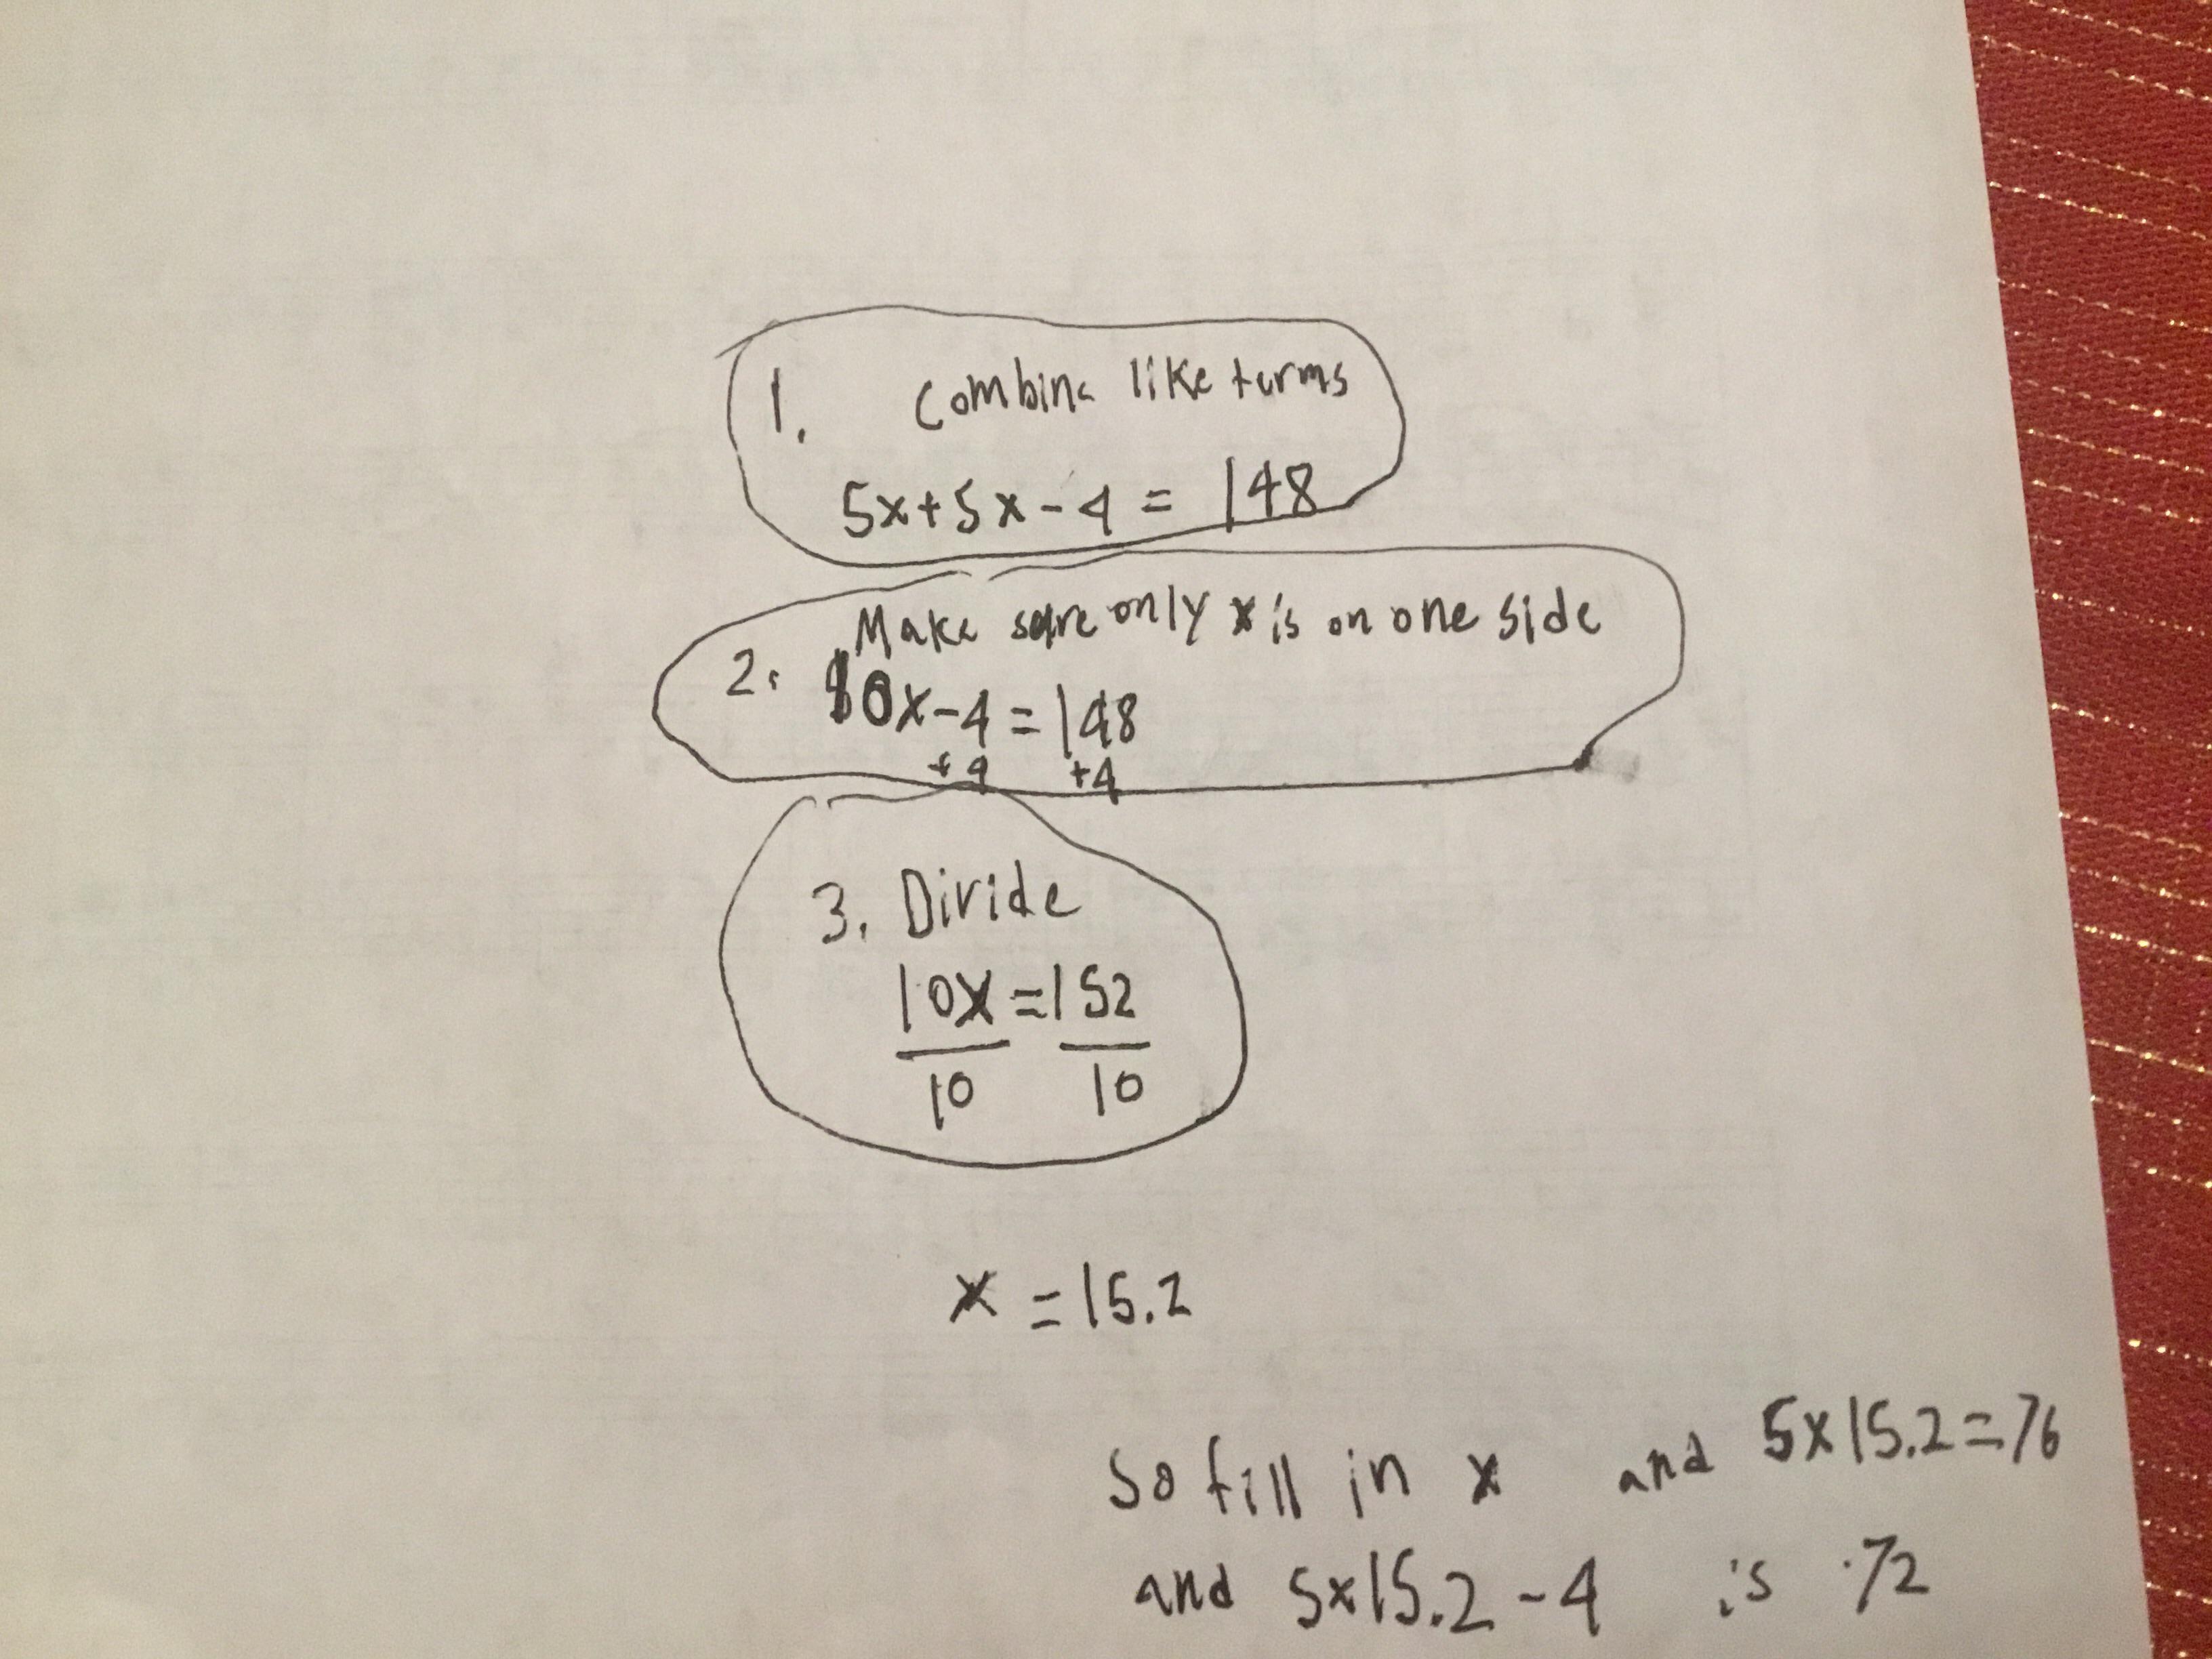 1. Combine like terms
5x+5x-4 = 148
Make sure only x is on one side
2. 10x-4=148
+4 +4
3. Divide
10x=152
10 10
x = 15.2
So fill in x and 5x15.2=76
and 5x15.2-4 is 72